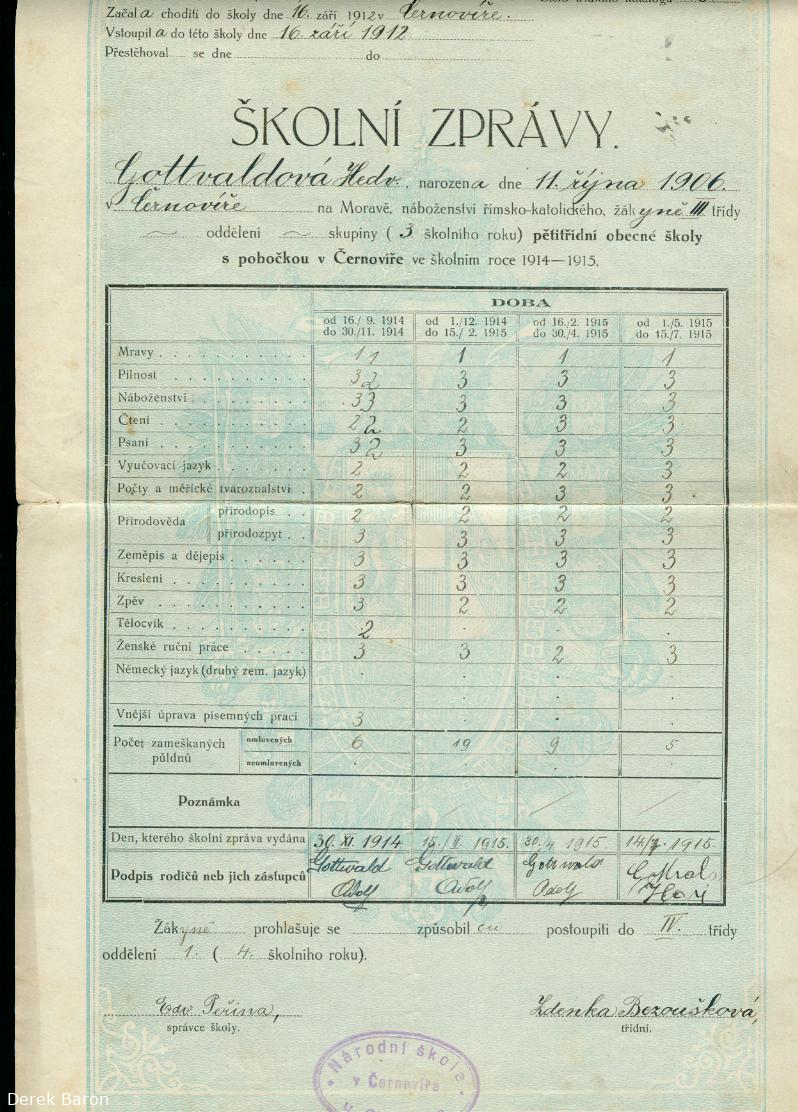 Začala choditi do školy dne 16. září 1912 v Černovíře.
Vstoupila do této školy dne 16. září 1912
Přestěhoval se dne do
ŠKOLNÍ ZPRÁVY.
Gottvaldová Hedv., narozena dne 11. října 1906.
v Černovíře na Moravě, náboženství římsko-katolického, žákyně III třídy
oddělení skupiny ( 3 školního roku) pětitřídní obecné školy
s pobočkou v Černovíře ve školním roce 1914—1915.
DOBA
od 16./9. 1914 do 30./11. 1914 od 1./12. 1914 do 15./2. 1915 od 16./2. 1915 do 30./4. 1915 od 1./5. 1915 do 15./7. 1915
Mravy 1 1 1 1 1
Pilnost 3 2 3 3 3
Náboženství 3 3 3 3 3
Čtení 2 2 2 3 3
Psaní 3 2 3 3 3
Vyučovací jazyk 2 2 2 3
Počty a měřické tvaroznalství 2 2 3 3
Přírodověda přírodopis 2 2 2 2
přírodozpyt 3 3 3 3
Zeměpis a dějepis 3 3 3 3
Kreslení 3 3 3 3
Zpěv 3 2 2 2
Tělocvik 2
Ženské ruční práce 3 3 2 3
Německý jazyk (druhý zem. jazyk)
Vnější úprava písemných prací 3
Počet zameškaných půldnů omluvených 6 19 9 5
neomluvených
Poznámka
Den, kterého školní zpráva vydána 30. XI. 1914 15./II. 1915. 30./4 1915. 14/7. 1915.
Podpis rodičů neb jich zástupců Gottwald Adolf Gottwald Adolf Gottwald Adolf
Žákyně prohlašuje se způsobilou postoupiti do IV. třídy
oddělení 1. ( 4. školního roku).
Edv Peřina, Zdenka Bezoušková,
správce školy. třídní.
Národní škola
v Černovíře
Derek Baron